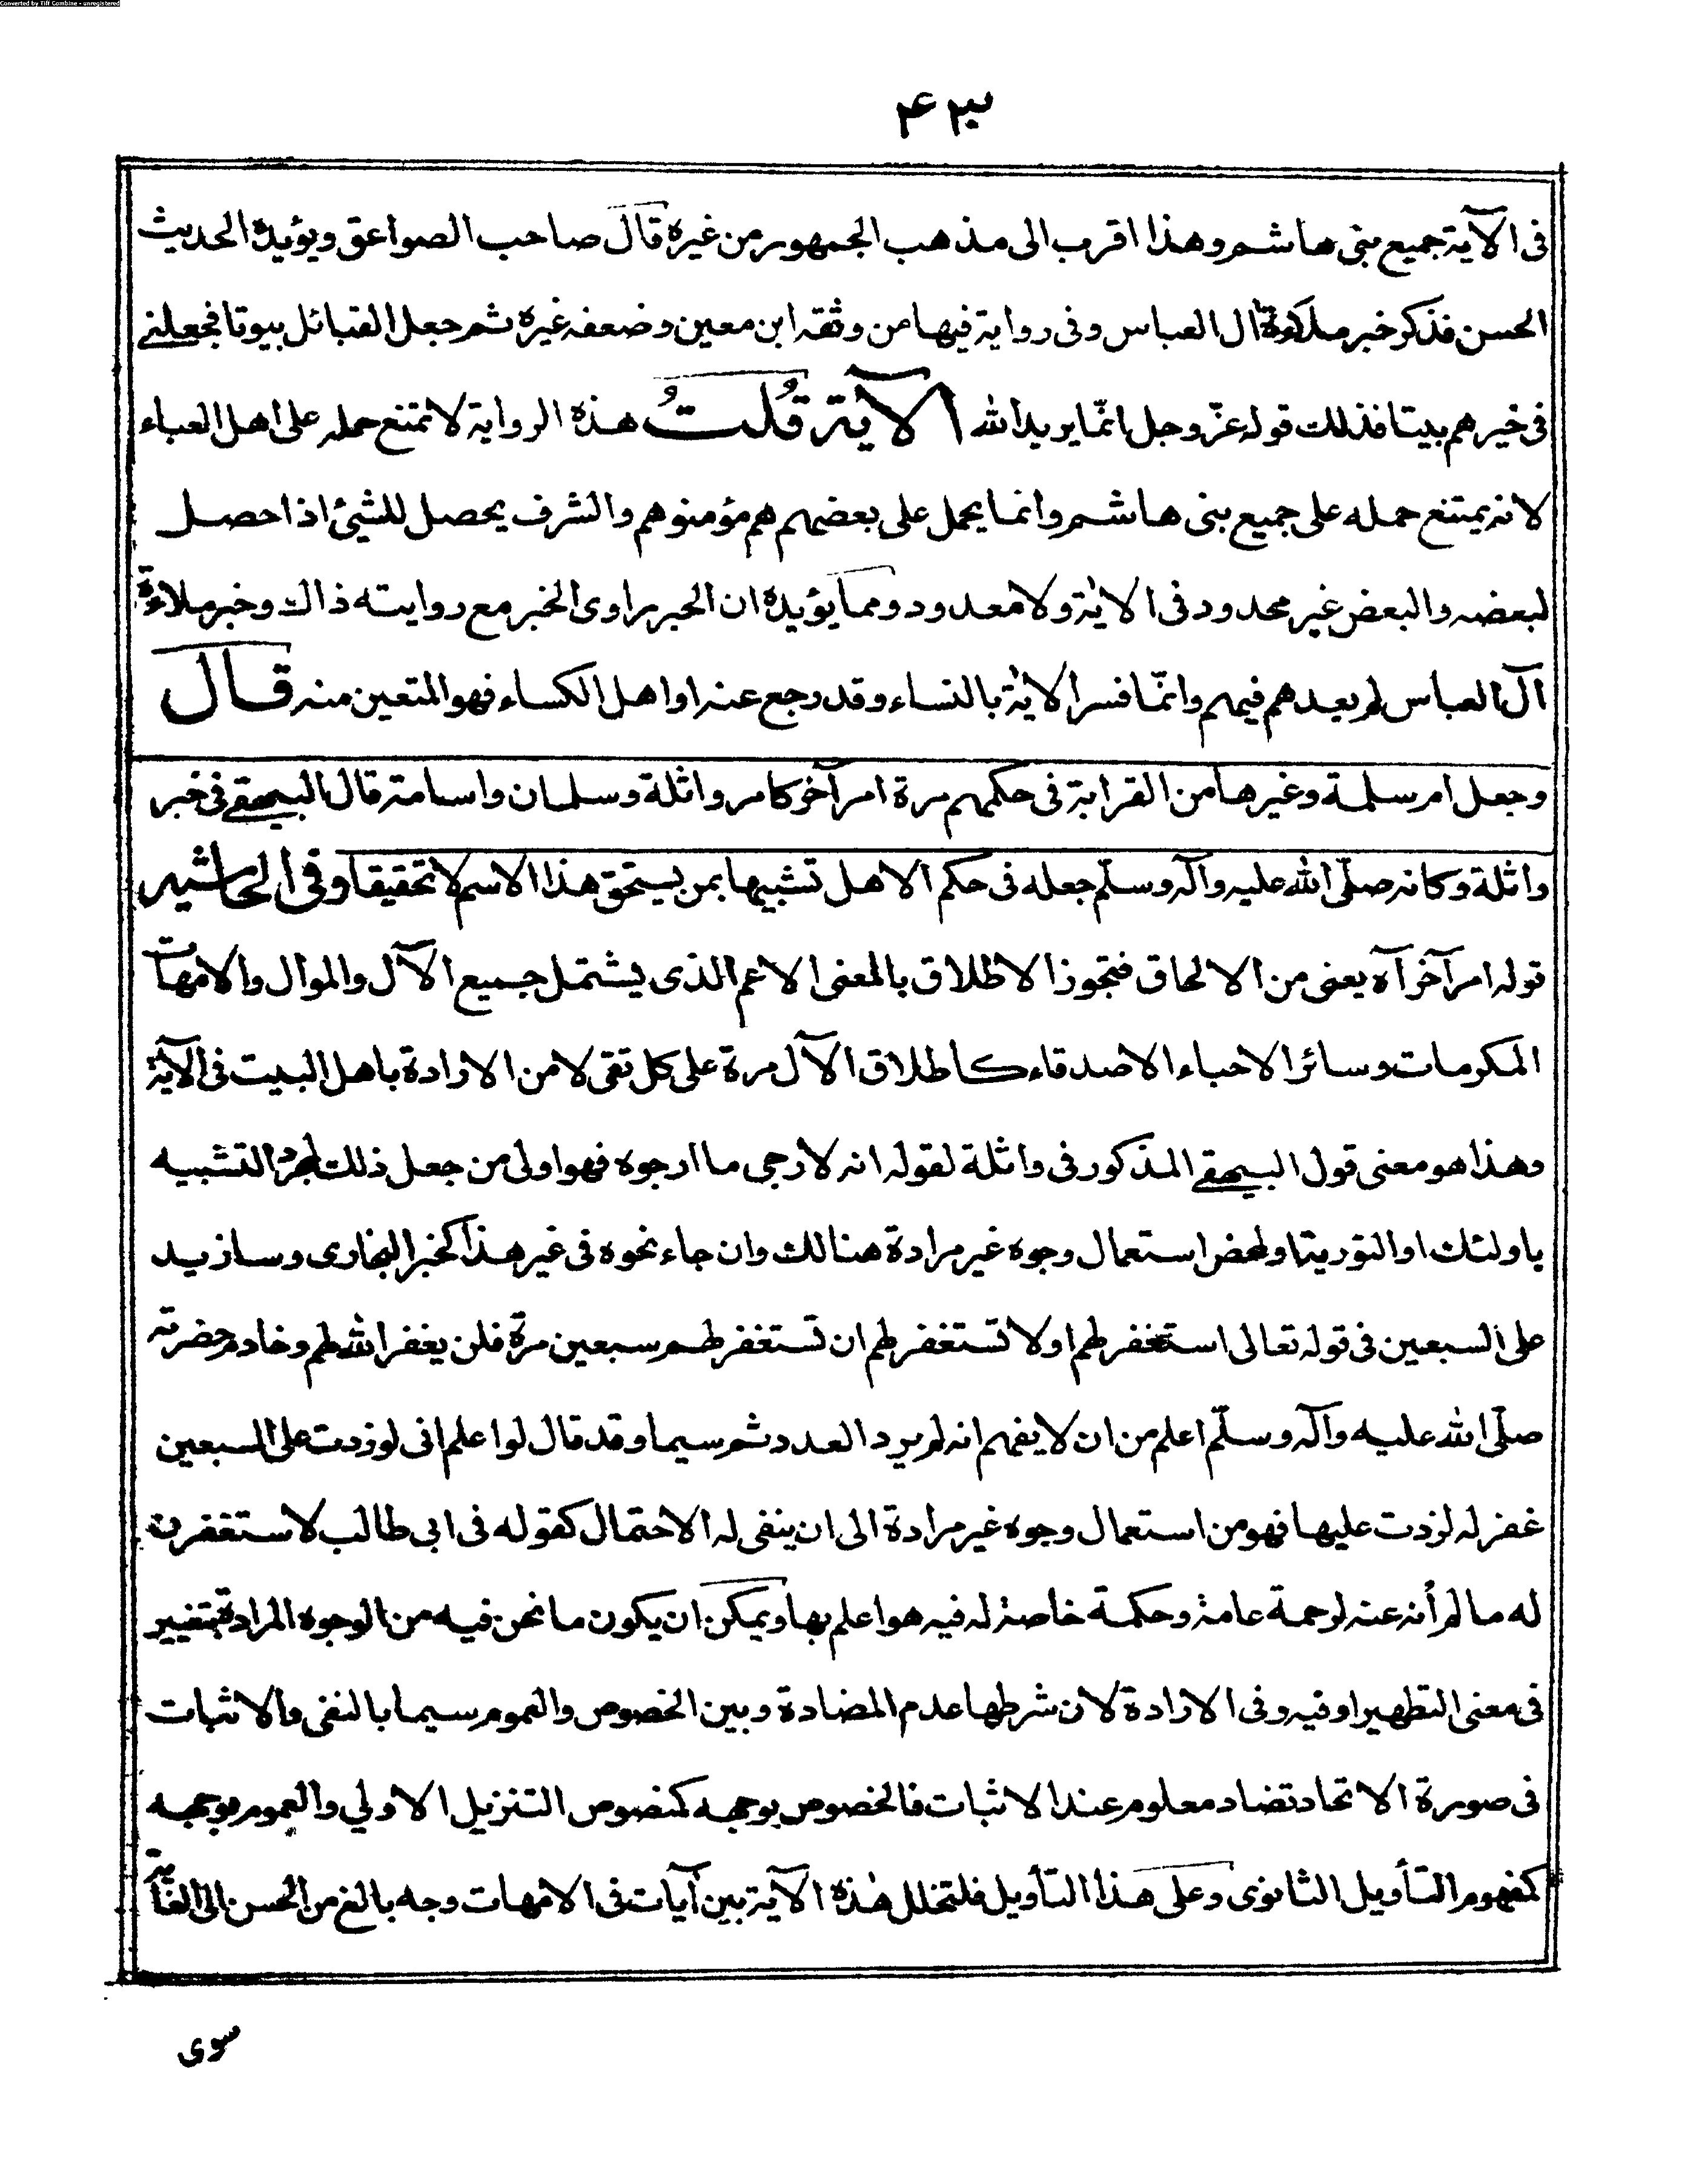 Converted by Tiff Combine - unregistered
۴۳
فى الآية جميع بنى هاشم وهذا اقرب الى مذهب الجمهور من غيره قال صاحب الصواعق ويؤيده الحديث
الحسن فذكر خبر ملاءة آل العباس وفى رواية فيها من وثقه ابن معين وضعفه غيره ثم جعل القبائل بيوتا فجعلنى
فى خيرهم بيتا فذلك قوله عزّ وجل انّما يريد الله الآية قُلتُ هذه الرواية لا تمتنع حمله على اهل العباء
لانه يمتنع حمله على جميع بنى هاشم وانما يحمل على بعضهم هم مؤمنوهم والشرف يحصل للشئ اذا حصل
لبعضه والبعض غير محدود فى الاية ولا معدود ومما يؤيده ان الحبر راوى الخبر مع روايته ذاك وخبر ملاءة
آل العباس لم يعدهم فيهم وانّما فسر الاية بالنساء وقد رجع عنه او اهل الكساء فهو المتعين منه قال
وجعل ام سلمة وغيرها من القرابة فى حكمهم مرة امر آخر كما مر واثلة وسلمان واسامة قال البيهقى فى خبر
واثلة وكانه صلّى الله عليه وآله وسلّم جعله فى حكم الاهل تشبيها بمن يستحق هذا الاسم لا تحقيقا وفى الحاشيه
قوله امر آخر آه يعنى من الالحاق فتجوز الاطلاق بالمعنى الاعم الذى يشتمل جميع الآل والموال والامهات
المكرمات وسائر الاحباء الاصدقاء كاطلاق الآل مرة على كل تقى لا من الارادة باهل البيت فى الآية
وهذا هو معنى قول البيهقى المذكور فى واثلة لقوله انه لارجى ما ارجوه فهو اولى من جعل ذلك لمجرد التشبيه
باولئك او التورية او لمحض استعمال وجوه غير مرادة هنالك وان جاء نحوه فى غير هذا كخبر البخارى وسازيد
على السبعين فى قوله تعالى استغفر لهم او لا تستغفر لهم ان تستغفر لهم سبعين مرة فلن يغفر الله لهم وخادم حضرته
صلّى الله عليه وآله وسلّم اعلم من ان لا يفهم انه لم يرد العدد ثم سيما وقد قال لو اعلم انى لو زدت على السبعين
غفر له لزدت عليها فهو من استعمال وجوه غير مرادة الى ان ينفى له الاحتمال كقوله فى ابى طالب لاستغفرن
له ما لم أنه عنه لرحمة عامة وحكمة خاصة له فيه هو اعلم بها ويمكن ان يكون ما نحن فيه من الوجوه المرادة بتغيير
فى معنى التطهير او فيه وفى الارادة لان شرطها عدم المضادة وبين الخصوص والعموم سيما بالنفى والاثبات
فى صورة الاتحاد تضاد معلوم عند الاثبات فالخصوص بوجهه كنصوص التنزيل الاولي والعموم بوجهه
كمفهوم التأويل الثانوى وعلى هذا التأويل فلتخلل هذه الآية بين آيات فى الامهات وجه بالغ من الحسن الى الغاية
سوى